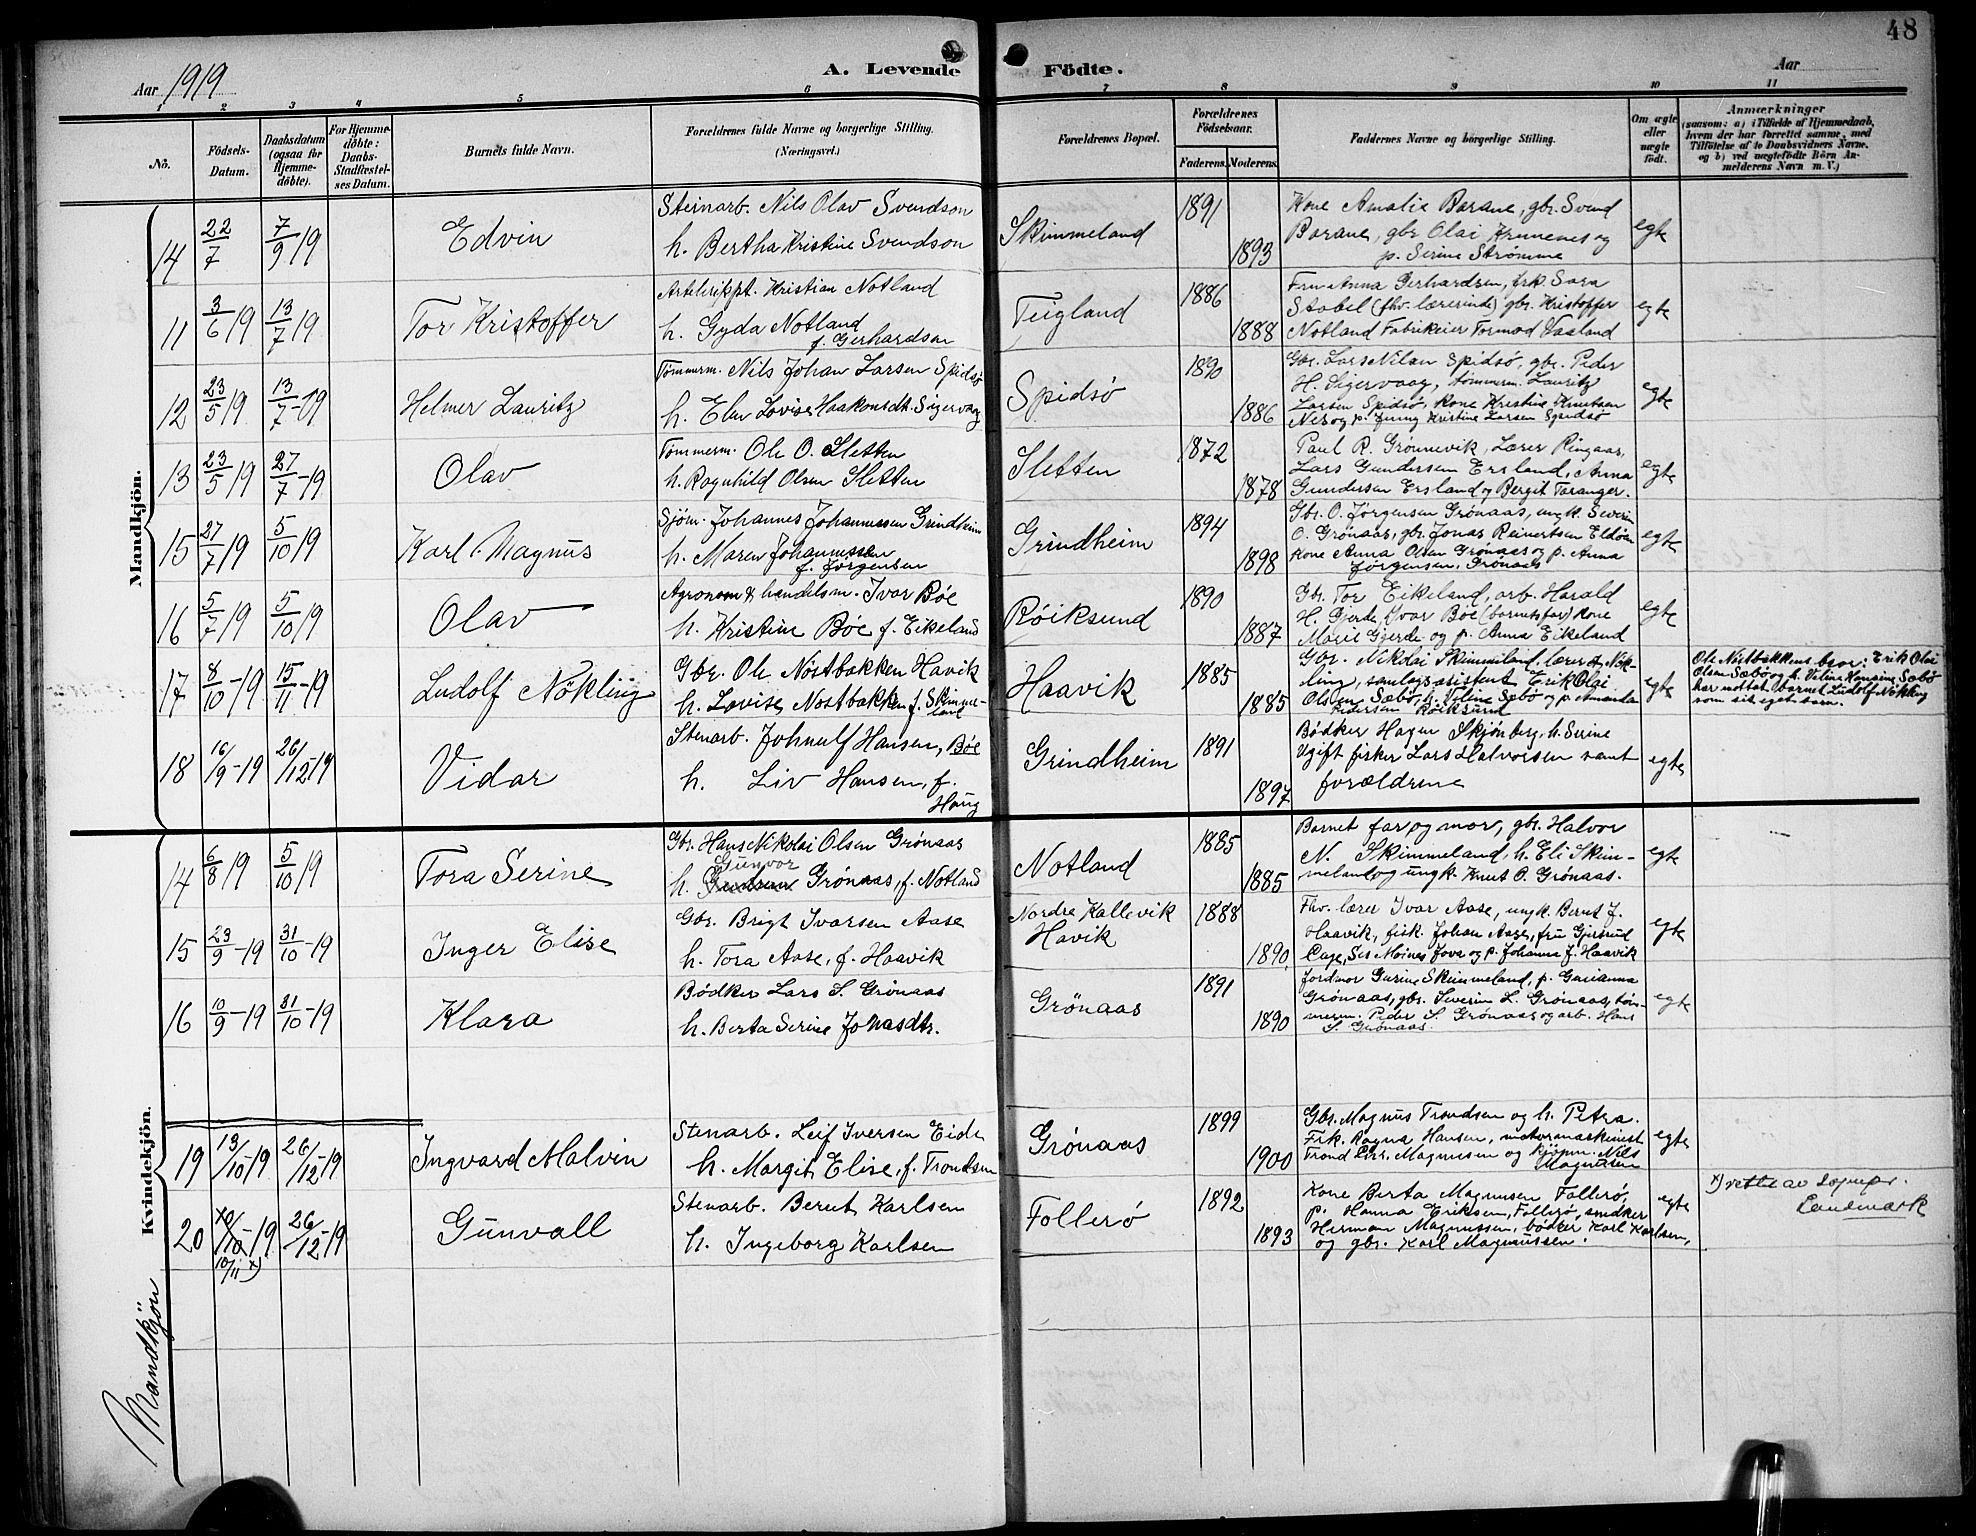 48
Aar 1919
A. Levende Födte.
Aar
1 2 3 4 5 6 7 8 9 10 11
No.
Födsels-Datum.
Daabsdatum (ogsaa för Hjemme-döbte).
For Hjemme-döbte: Daabs-Stadfæstel-ses Datum.
Barnets fulde Navn.
Forældrenes fulde Navne og borgerlige Stilling.
(Næringsvei.)
Forældrenes Bopæl.
Forældrenes Födselsaar.
Faderens. Moderens.
Faddernes Navne og borgerlige Stilling.
Om ægte eller uægte födt.
Anmærkninger
(saasom: a) i Tilfælde af Hjemmedaab,
hvem der har forrettet samme, med
Tilföielse af to Daabsvidners Navne.
og b) ved uægtefödte Börn An-
melderens Navn m. V.)
Mandkjön.
14 22/7 7/9 19 Edvin
Steinarb. Nils Olav Svendson
h. Bertha Kristine Svendson
Skimmeland 1891 1893
Kone Amalie Barane, gbr. Svend
Barane, gbr Olai Krunenes og
p. Serine Strømme
egte
11 3/6 19 13/7 19 Tor Kristoffer
Kristian Notland
h. Gyda Notland
f. Gerhardsen
Teigland 1886 1888
Fru Anna Gerhardsen, frk. Sara
Stabel (fhv. lærerinde) gbr. Kristoffer
Notland Fabrikeier Tormod Vasland
egte
12 23/5 19 13/7-19 Helmer Lauritz
Tømmerm. Nils Johan Larsen Spidsø
h. Elen Lovise Haakonsdt. Sigervaag
Spidsø 1890 1886
Gbr. Lars Nilsen Spidsø, gbr. Peder
H. Sigervaag, tømmerm. Lauritz
Larsen Spidsø, Kone Kristine Knutsen
Nes og p. Jenny Kristine Larsen Spidsø
egte
13 23/5 19 27/7-19 Olav
Tømmerm. Ole O. Sletten
h. Ragnhild Olsen Sletten
Sletten 1872 1878
Paul R. Grønnevik, Lærer Ringaas,
Lars Gundersen Ersland, Anna
Gundersen Ersland og Bergit Taranger.
egte
15 27/7 19 5/10 19 Karl Magnus
Sjøm. Johannes Johannessen Grindheim
h. Maren Johannessen
f. Jørgensen
Grindheim 1894 1898
Gbr. O. Jørgensen Grønaas, ungk. Severin
O. Grønaas, gbr. Jonas Reinertsen Eldøen
Kone Anna Olsen Grønaas og p. Anna
Jørgensen, Grønaas
egte
16 5/7 19 5/10 19 Olav
Agronom & handelsm. Ivar Bøe
h. Kristine Bøe f. Eikeland
Røiksund 1890 1887
Gbr. Tor Eikeland, arb. Harald
H. Gjerde, Ivar Bøe (barnets far) Kone
Marie Gjerde og p. Anna Eikeland
egte
17 8/10-19 15/11-19 Ludolf Nökling
Gbr. Ole Nöstbakken Havik
h. Lovise Nostbakken f. Skimme-
land
Haavik 1885 1885
Gbr. Nikolai Skimmeland, lærer O. Nök-
ling, samlagsasistent Erik Olai
Olsen Sæbö, h. Veline Sæbö og p. Amanda
Pedersen Röiksund
egte
Ole Nöstbakkens bror: Erik Olai
Olsen Sæbö og h. Veline Hansine Sæbö
har mottat barnet Ludolf Nökling
som sit eget barn.
18 16/9-19 26/12-19 Vidar
Stenarb. Johnulf Hansen, Bøe
h. Liv Hansen, f.
Haug
Grindheim 1891 1897
Bødker Hagen Skjönberg, h. Serine
Ugift fisker Lars Halvorsen samt
forældrene
egte
Kvindekjön.
14 6/8 19 5/10 19 Tora Serine
Gbr. Hans Nikolai Olsen Grønaas
Gunvor
h. Gudrun Grønaas, f. Notland
Notland 1885 1885
Barnet far og mor, gbr. Halvor
N. Skimmeland, h. Eli Skim-
meland og ungk. Knut O. Grønaas.
egte
15 23/9-19 31/10-19 Inger Elise
Gbr. Brigt Ivarsen Aase
h. Tora Aase, f. Haavik
Nordre Kallevik
Havik
1888 1890
Fhv. lærer Ivar Aase, ungk. Bernt J.
Haavik, fisk. Johan Aase, fru Gjertrud
Cage, Des Moines Jova og p. Johanna J. Haavik
egte
16 10/9-19 31/10-19 Klara
Bødker Lars S. Grønaas
h. Berta Serine Jonasdtr.
Grönaas 1891 1890
Jordmor Gurine Skimmeland, p. Gurianna
Grønaas, gbr. Severin L. Grønaas, tøm-
merm. Peder S. Grønaas og arb. Hans
S. Grønaas.
egte
19 13/10-19 26/12-19 Ingvard Malvin
Stenarb. Leif Iversen Eide
h. Margit Elise, f. Trondsen
Grønaas 1899 1900
Gbr. Magnus Trondsen og h. Petra.
Frk. Ragna Hansen, motormaskinist
Trond Chr. Magnusen og kjøpm. Nils
Magnussen
egte
20 10/10-19 10/11 x) 26/12-19 Gunvall
Stenarb. Bernt Karlsen
h. Ingeborg Karlsen
Follerö 1892 1893
Kone Berta Magnusen Follerö,
p. Hanna Eriksen, Follerö, snedker
Herman Magnussen, bødker Karl Karlsen,
og gbr. Karl Magnussen.
egte
x) rettet av sognepr.
Landmark
Mandkjön